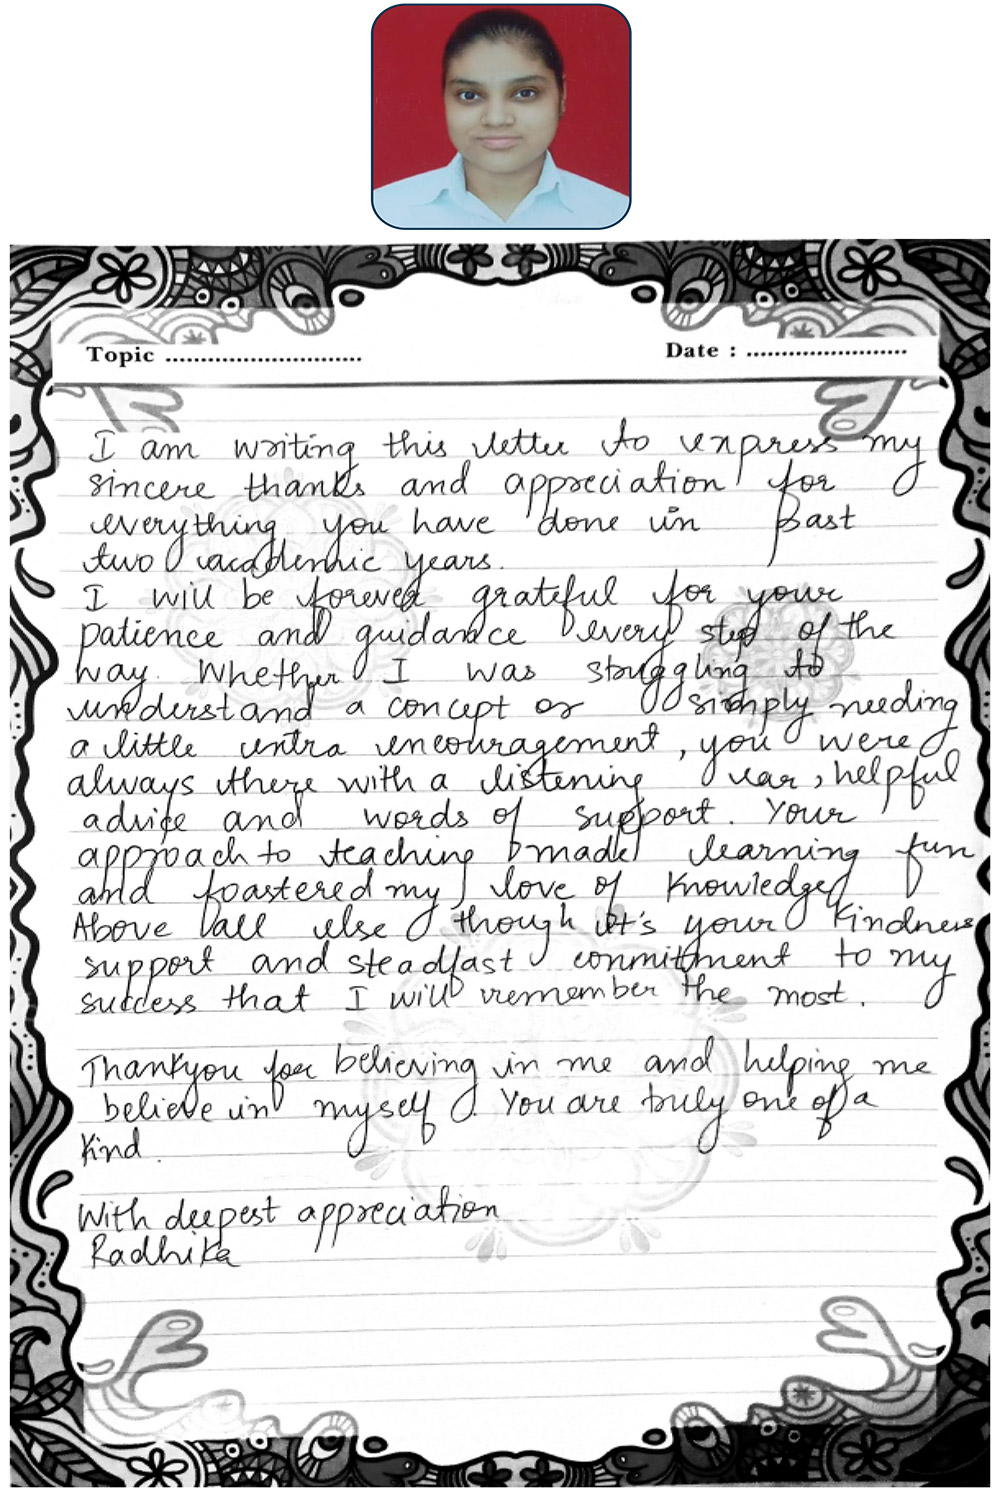 Topic ............................ Date : .......................
I am writing this letter to express my
sincere thanks and appreciation for
everything you have done in past
two academic years.
I will be forever grateful for your
patience and guidance every step of the
way. Whether I was struggling to
understand a concept or simply needing
a little extra encouragement, you were
always there with a listening ear, helpful
advice and words of support. Your
approach to teaching made learning fun
and foastered my love of knowledge
Above all else though it's your kindness
support and steadfast commitment to my
success that I will remember the most.
Thankyou for believing in me and helping me
believe in myself. You are truly one of a
kind.
With deepest appreciation
Radhika